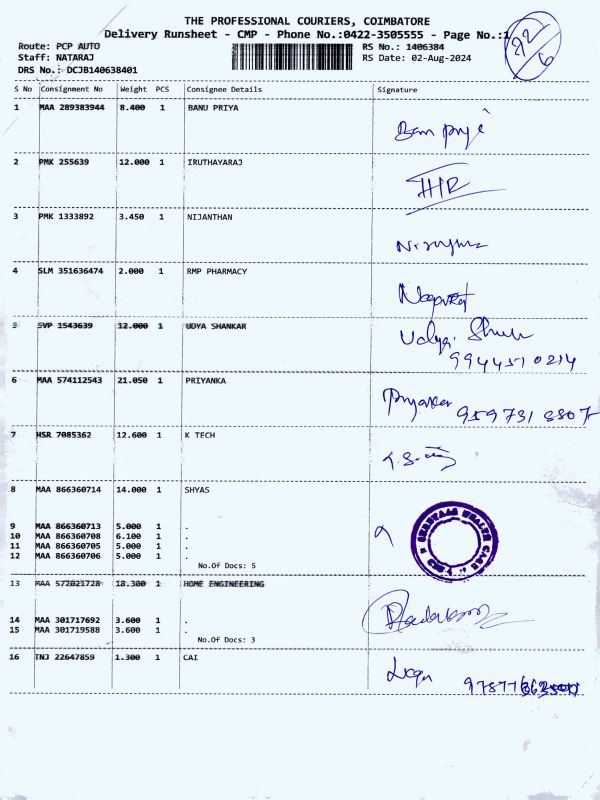 THE PROFESSIONAL COURIERS, COIMBATORE
Delivery Runsheet - CMP - Phone No.:0422-3505555 - Page No.:1
22/6
Route: PCP AUTO RS No.: 1406384
Staff: NATARAJ RS Date: 02-Aug-2024
DRS No.: DCJB140638401
S No Consignment No Weight PCS Consignee Details Signature
1 MAA 289383944 8.400 1 BANU PRIYA
Banu priya
2 PMK 255639 12.000 1 IRUTHAYARAJ
3 PMK 1333892 3.450 1 NIJANTHAN
4 SLM 351636474 2.000 1 RMP PHARMACY
5 SVP 1543639 12.000 1 UDYA SHANKAR
9944510214
6 MAA 574112543 21.050 1 PRIYANKA
9597318807
7 HSR 7085362 12.600 1 K TECH
8 MAA 866360714 14.000 1 SHYAS
9 MAA 866360713 5.000 1 .
10 MAA 866360708 6.100 1 .
11 MAA 866360705 5.000 1 .
12 MAA 866360706 5.000 1 .
No.Of Docs: 5
13 MAA 572021728 18.300 1 HOME ENGINEERING
14 MAA 301717692 3.600 1 .
15 MAA 301719588 3.600 1 .
No.Of Docs: 3
16 TNJ 22647859 1.300 1 CAI